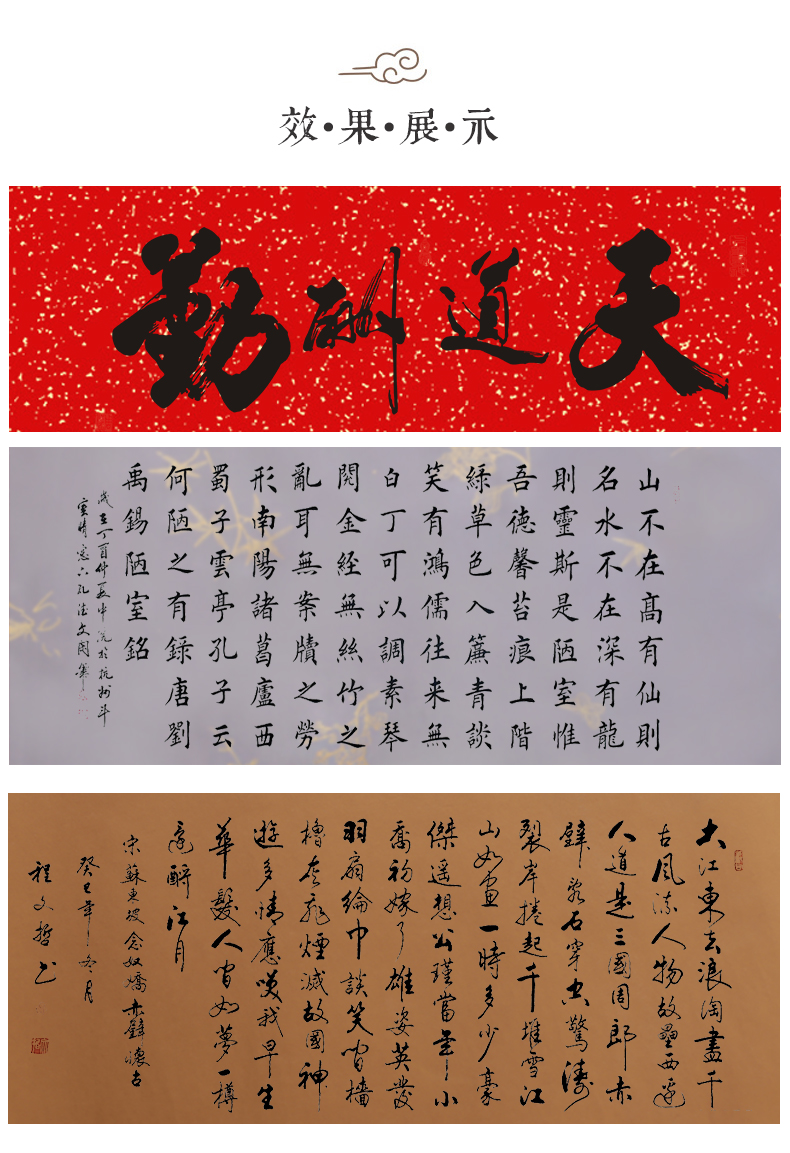 效·果·展·示
天道酬勤
山不在高有仙則
名水不在深有龍
則靈斯是陋室惟
吾德馨苔痕上階
綠草色入簾青談
笑有鴻儒往来無
白丁可以調素琴
閱金經無絲竹之
亂耳無案牘之勞
形南陽諸葛廬西
蜀子雲亭孔子云
何陋之有錄唐劉
禹錫陋室銘
歲在丁酉仲夏中浣於杭州斗
大江東去浪淘盡千
古風流人物故壘西邊
人道是三國周郎赤
壁亂石穿空驚濤
裂岸捲起千堆雪江
山如畫一時多少豪
傑遥想公瑾當年小
喬初嫁了雄姿英發
羽扇綸巾談笑間檣
櫓灰飛煙滅故國神
遊多情應笑我早生
華髮人間如夢一樽
還酹江月
宋蘇東坡念奴嬌赤壁懷古
癸巳年冬月
程文哲书